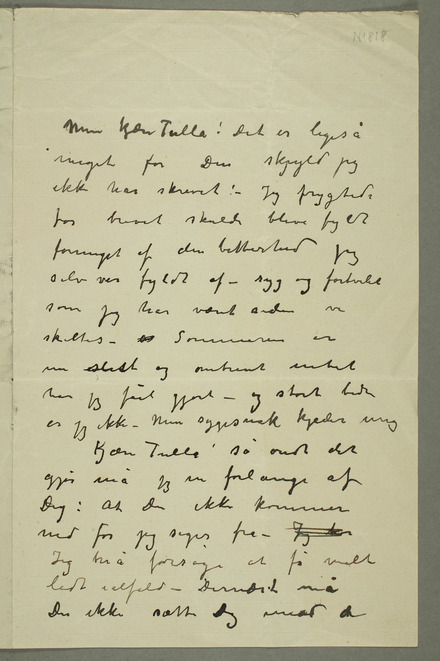 N1818
Min kjære Tulla! Det er ligeså
meget for Din skyld jeg
ikke har skrevet! – Jeg frygtede
for brevet skulde blive fyldt
formeget af den bitterhed jeg
selv var fyldt af – syg og fortvilet
som jeg har vært siden vi
skiltes – Sommeren er
nu slut og omtrent intet
har jeg fået gjort – og stort bedre
er jeg ikke – Min sygesnak kjeder mig
Kjære Tulla! så ondt det
gjør må jeg nu forlange af
Dig: At Du ikke kommer
ned før jeg siger fra – Jeg har
Jeg må forsøge at få malt
lidt ialfald – Dernæst må
Du ikke sætte Dig imod at